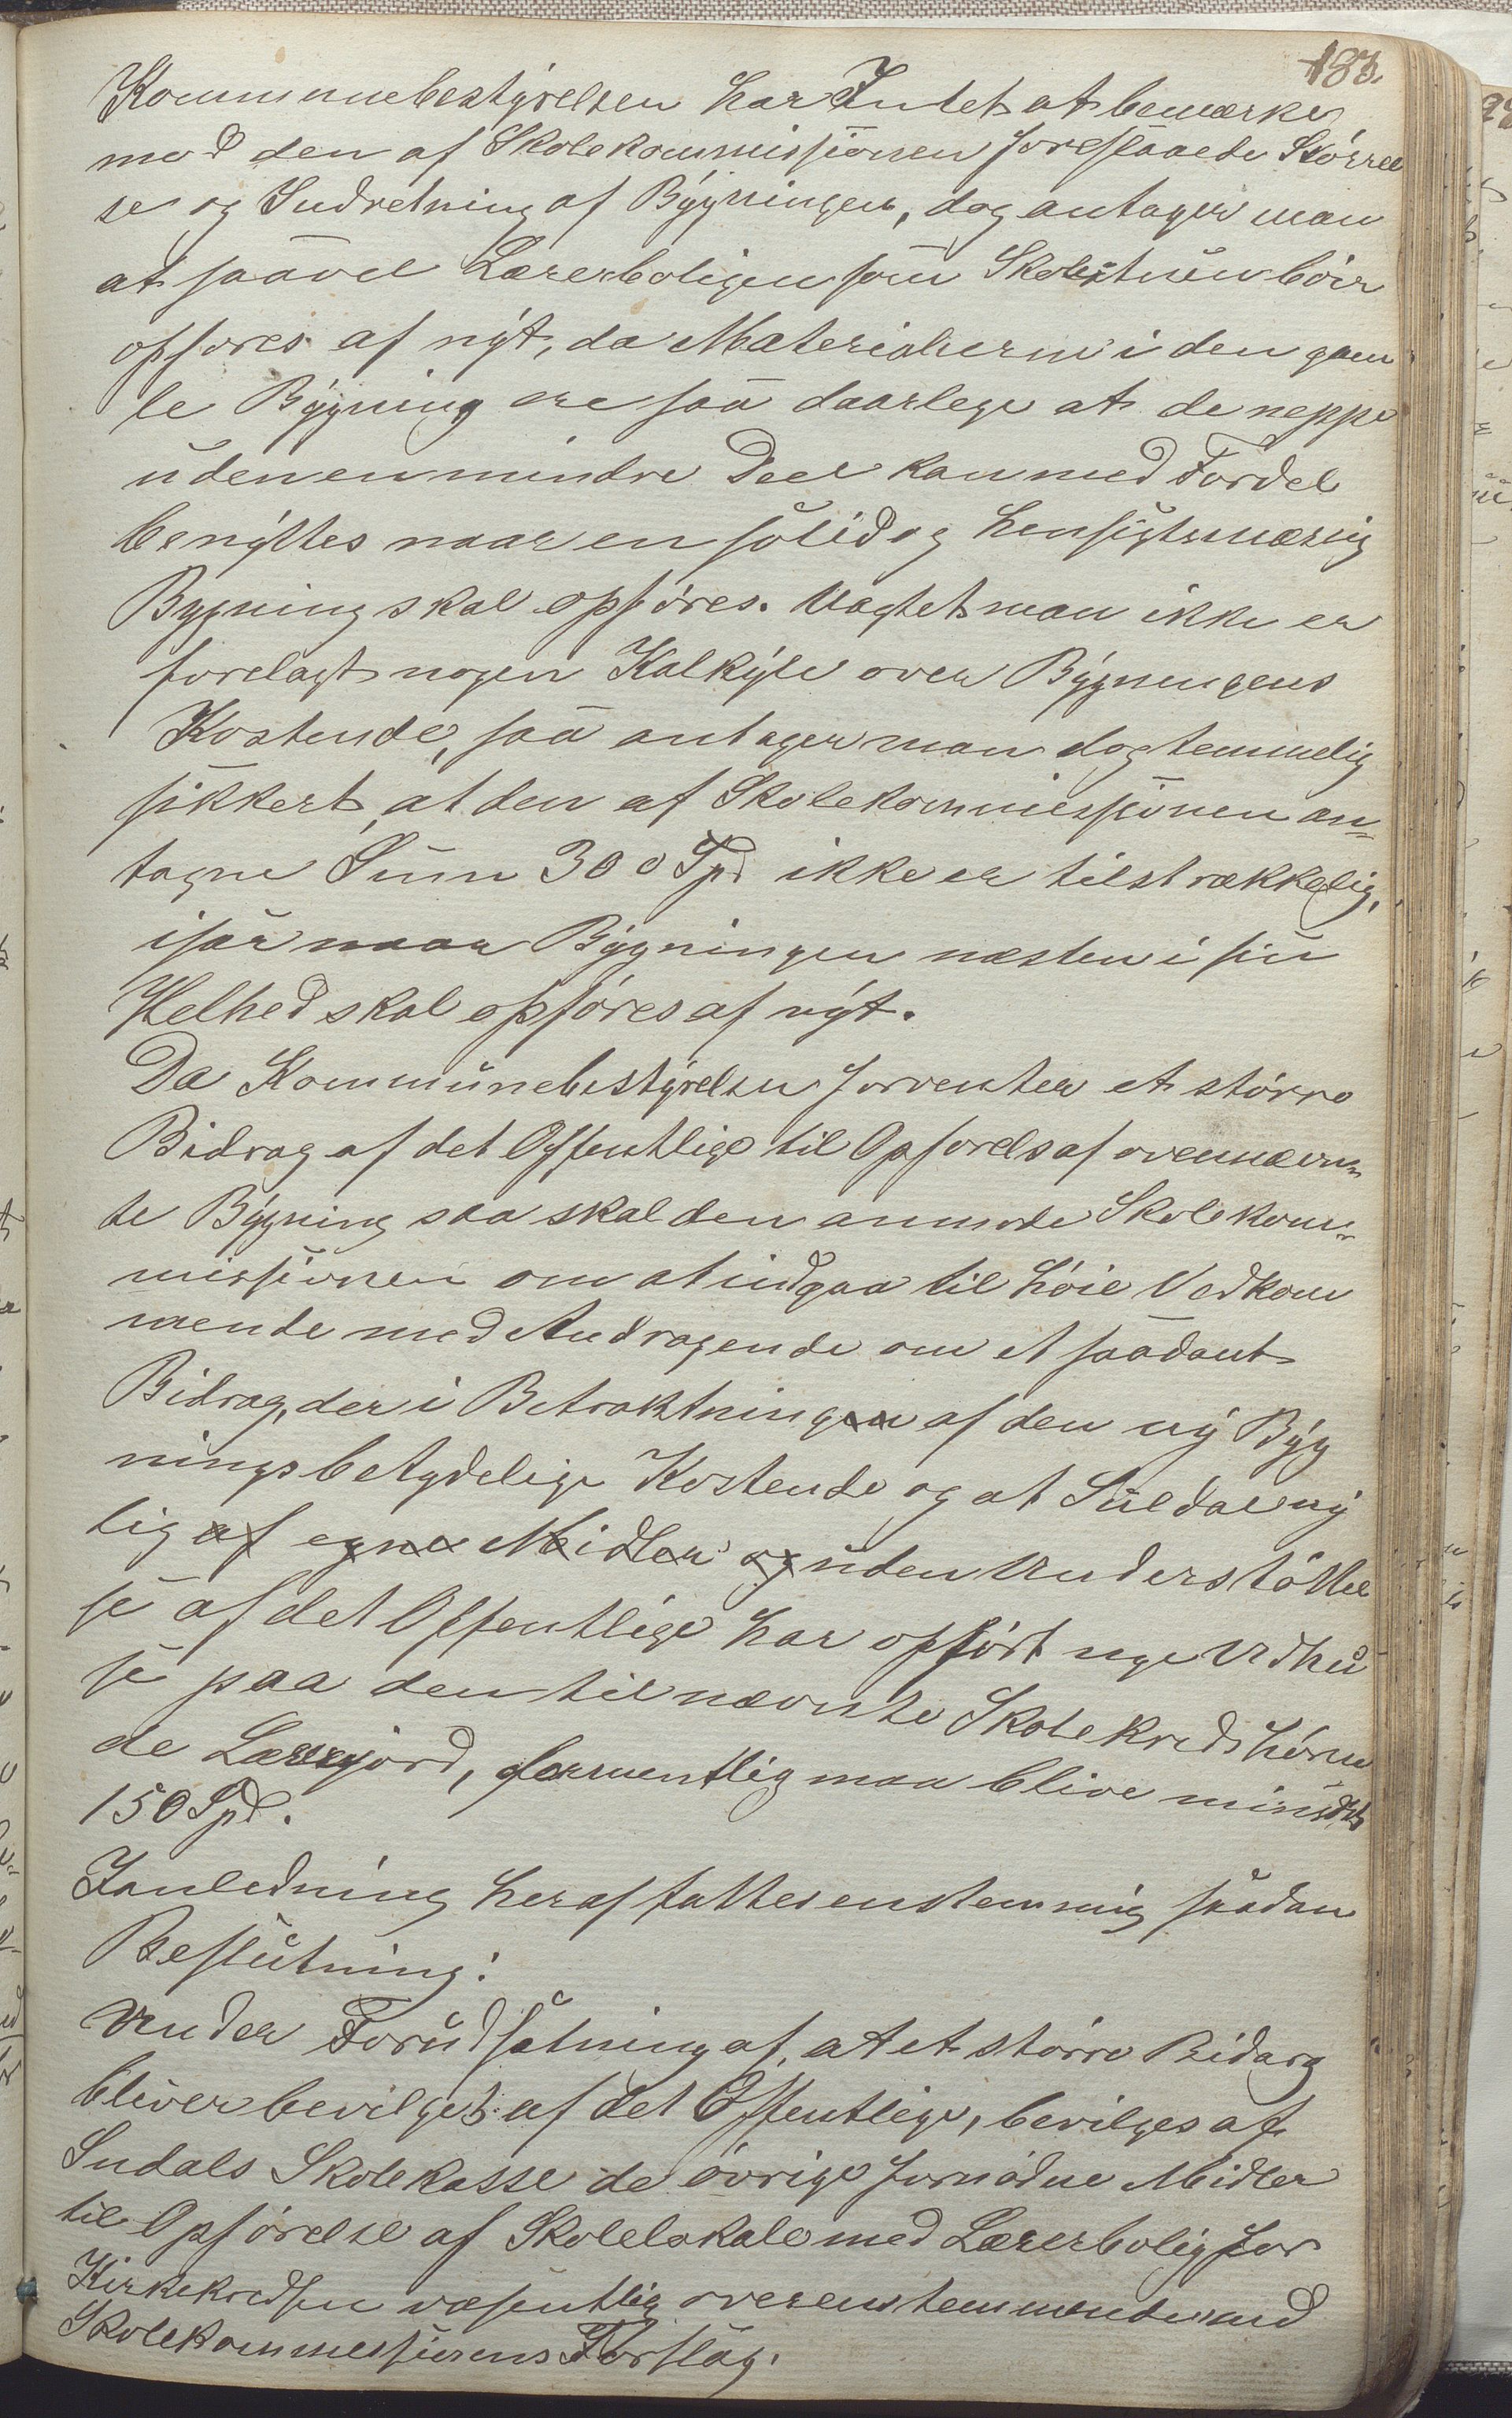 187.
Kommunebestyrelsen har Intet at bemærke
mod den af Skolekommissionen foreslaaede Størrel
se og Indretning af Bygningen, dog antager man
at saavel Lærerboligen som Skolestuen bør
opføres af nyt, da Materialierne i den gam
le Bygning ere saa daarlege at de neppe
uden en mindre Deel kan med Fordel
benyttes naar en solid og hensigtsmæsig
Bygning skal opføres. Uagtet man ikke er
forelagt nogen Kalkyle over Bygningens
Kostende, saa antager man dog temmelig
sikkert, at den af Skolekommissionen an-
tagne Sum 300 Spd ikke er tilstrækkelig,
især naar Bygningen næsten i sin
Helhed skal opføres af nyt.
Da Kommunebestyrelsen forventer et større
Bidrag af det Offentlige til Opførels af ovennævn-
te Bygning saa skal den anmode Skolekom-
missionen om at indgaa til høie Vedkom
mende med Andragende om et saadant
Bidrag, der i Betraktningen af den ny Byg
nings betydelige Kostende og at Suldal ny
lig af egne Midler og uden Understøttel
se af det Offentlige har opført nye Udhu
se paa den til nævnte Skolekreds høren
de Lærerjord, formentlig maa blive mindst
150 Spd.
I anledning heraf fattes enstemmig saadan
Beslutning:
Under Forudsætning af, at et større Bidarg
bliver bevilget af det Offentlige, bevilges af
Suldals Skolekasse de øvrige fornødne Midler
til Opførelse af Skolelokale med Lærerbolig for
Kirkekredsen væsentlig overenstemmende med
Skolekommissionens Forslag.